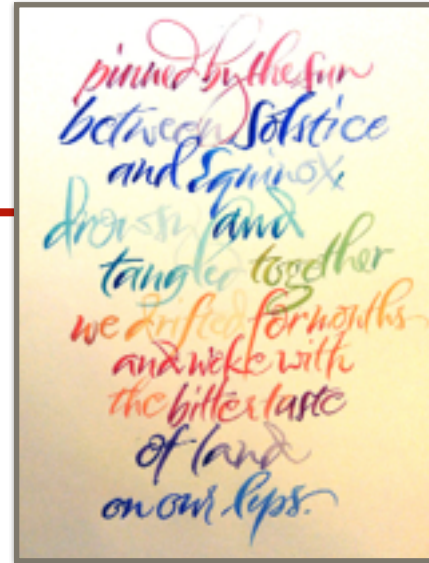 pinned by the sun
between solstice
and Equinox,
drowsy and
tangled together
we drifted for months
and woke with
the bitter taste
of land
on our lips.